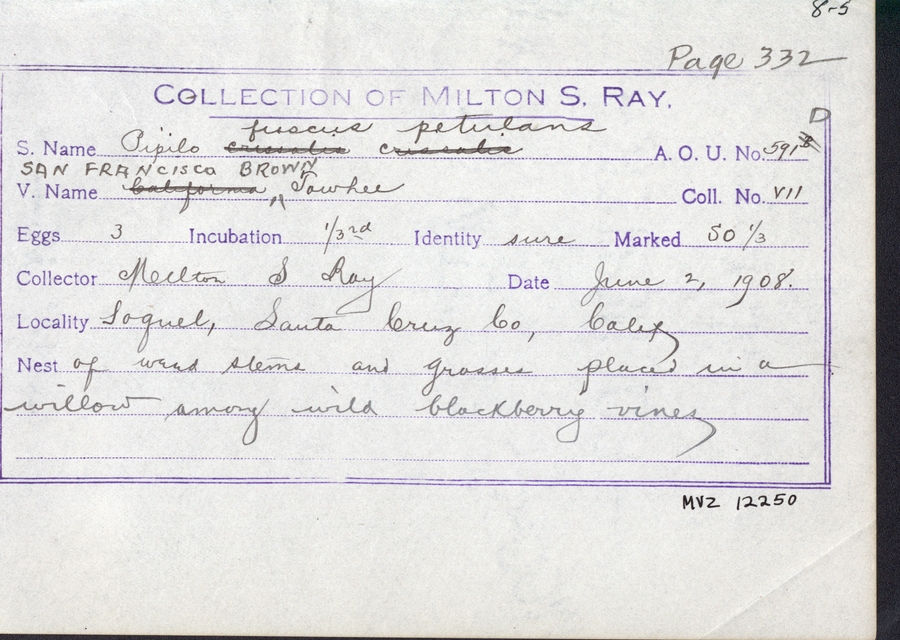 8-5
Page 332
COLLECTION OF MILTON S. RAY.
fuscus petulans
D
S. Name Pipilo crissalis crissalis A. O. U. No. 591 B
SAN FRANCISCO BROWN
V. Name California Towhee Coll. No. VII
Eggs 3 Incubation 1/3rd Identity sure Marked 50 1/3
Collector Milton S Ray Date June 2, 1908.
Locality Soquel, Santa Cruz Co, Calif
Nest of weed stems and grasses placed in a
willow among wild blackberry vines
MVZ 12250